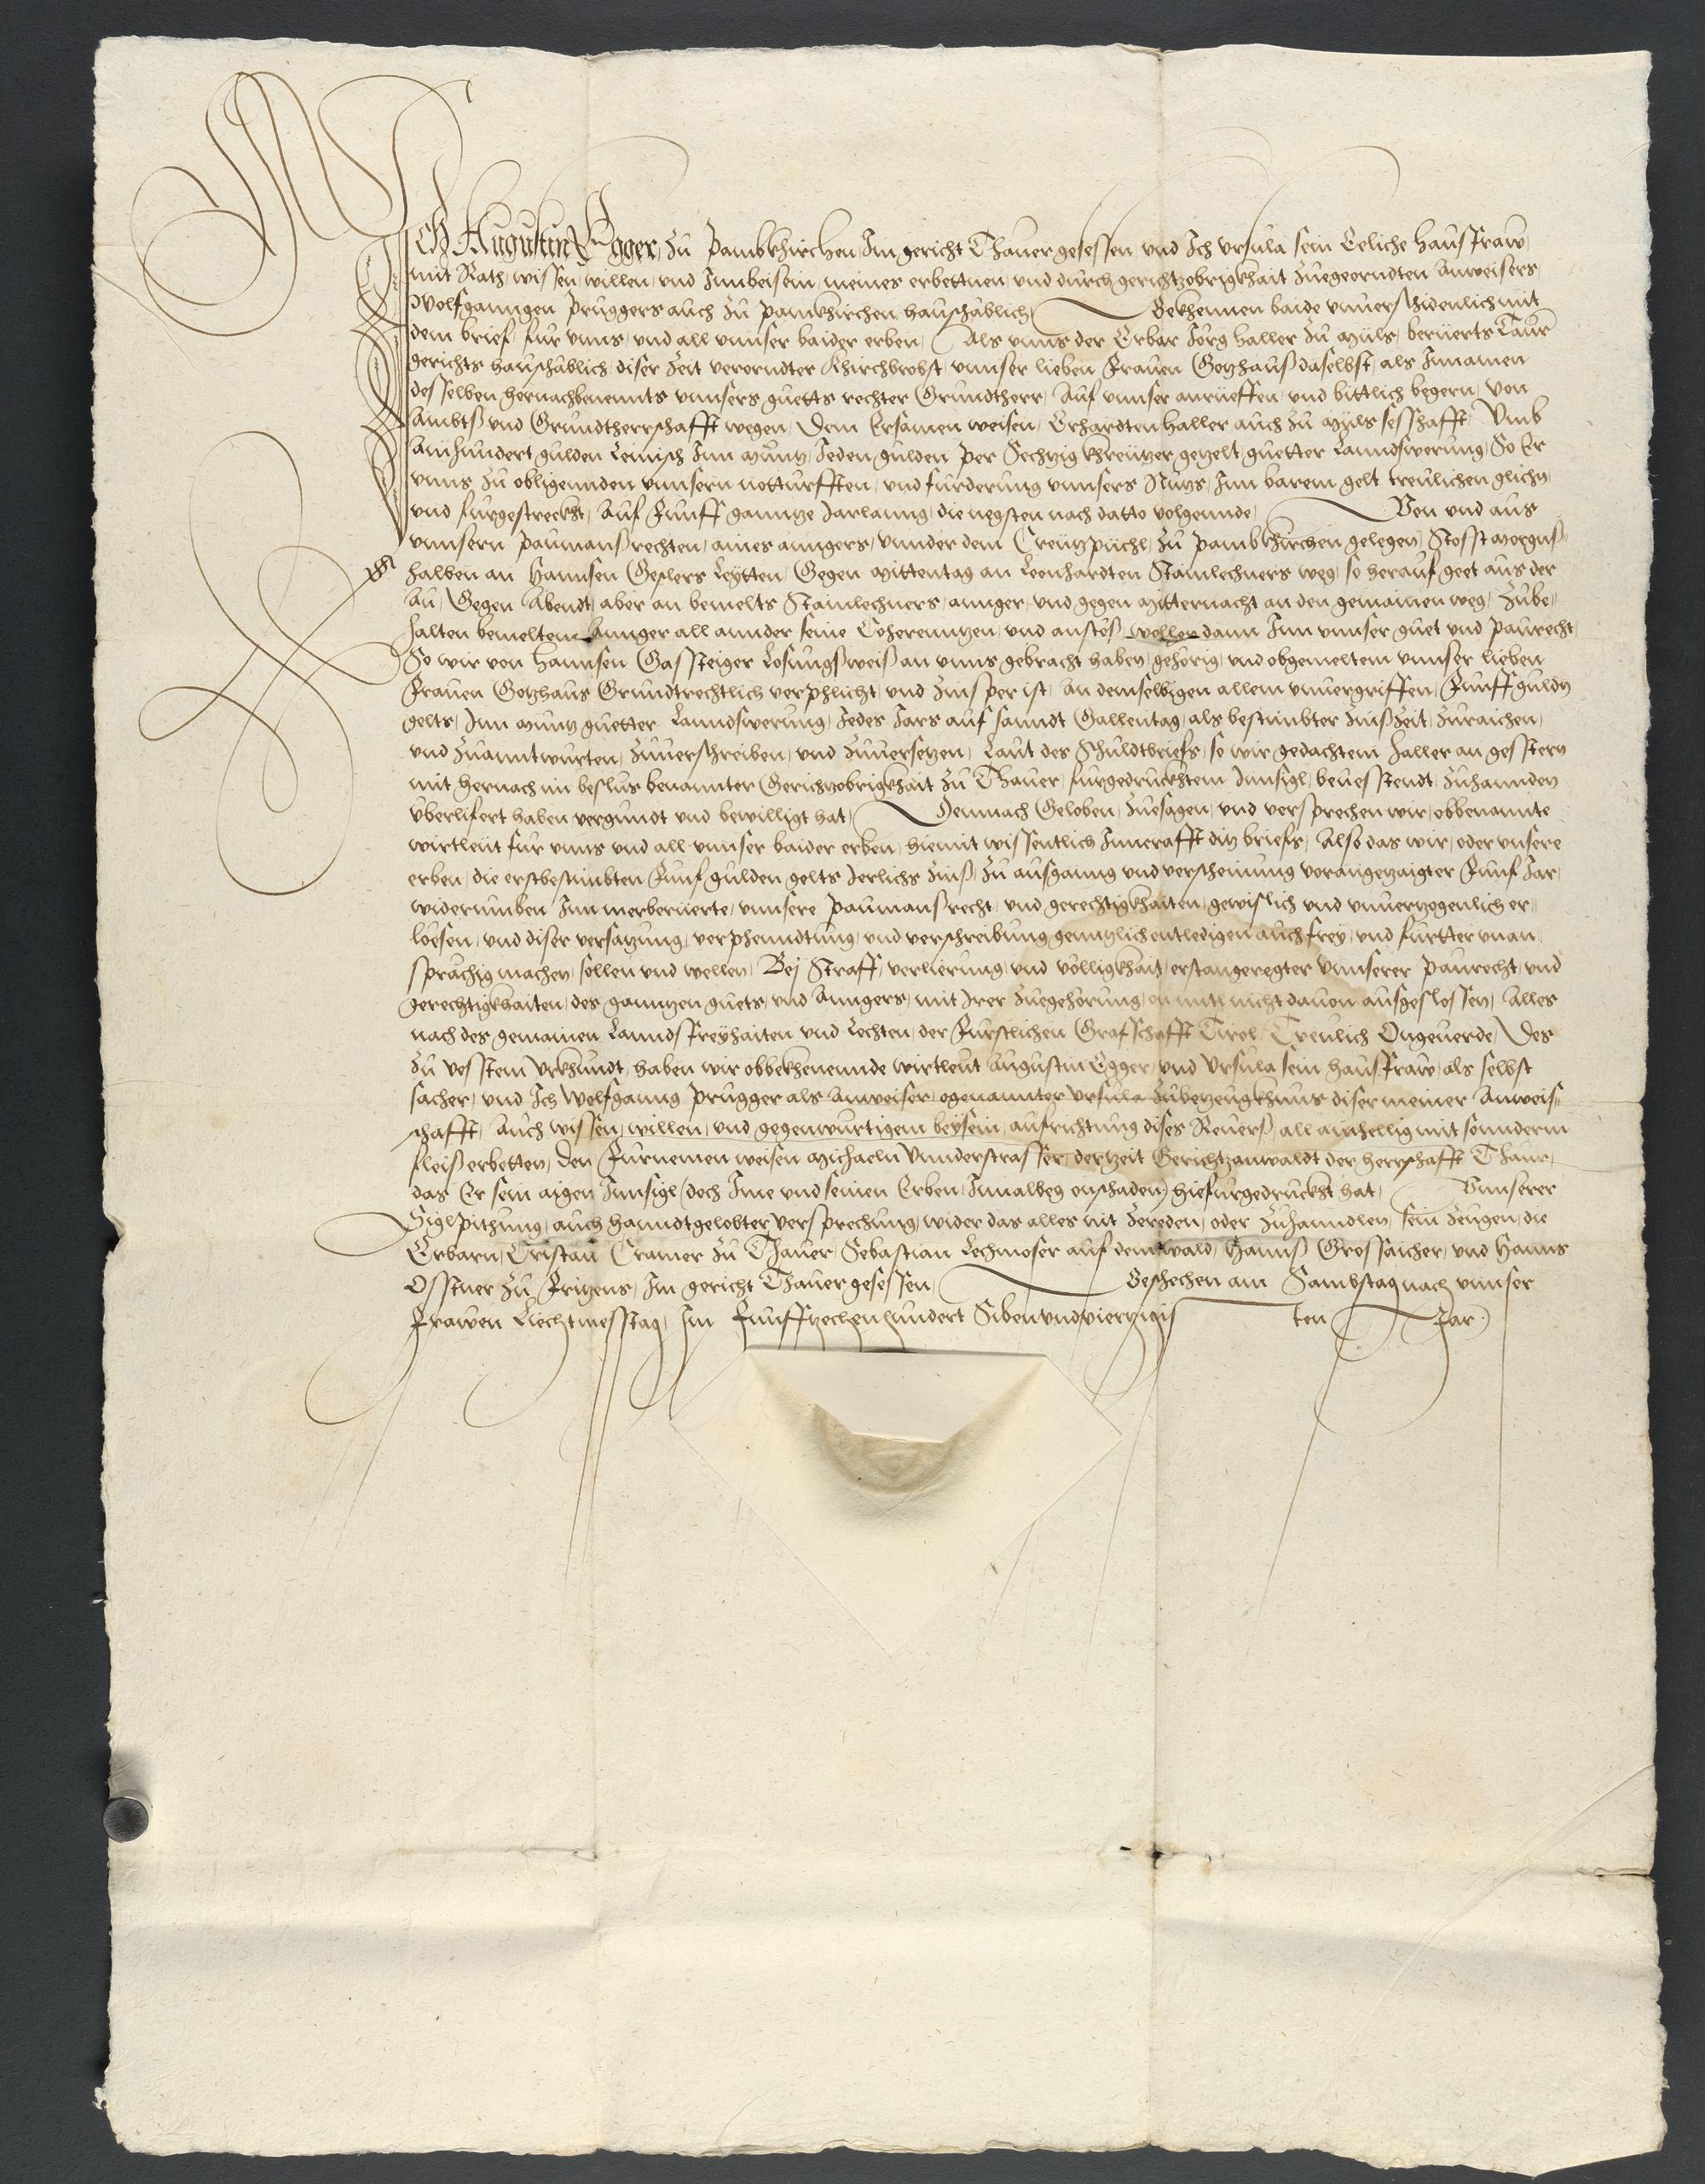 Ich Augustin Egger, zu Pambkhirchen, Im gericht Thauer gesessen, und Ich Ursula sein Eeliche hausfraw,
mit Rath, wissen, willen, und Innbeisein, meines erbettnen, und durch gerichtzobrigkhait zuegeordndten Anweisers,
Wolfganngen Pruggers auch zu Pamkhirchen, haushäblich, Bekhennen baide unuerschidenlich mit
dem brief, für unns, und all unnser baider erben, Als unns der Erbar Jörg Haller zu Mils, berüerts Taur
gerichts haushäblich, diser Zeit verordndter Khirchbrobst, unnser lieben Frauen Gotzhauß daselbst, als Innamen
desselben, hernachbenennts unnsers guetts rechter Grundtherr, Auf unnser anrüeffen, und bittlich begern, von
Ambtß und Grundtherrschafft wegen, Dem Ersamen weisen, Erhardten Haller auch zu Mils sesshafft, Umb
Ainhundert gulden Reinisch Inn Müntz, Jeden gulden per Sechtzig khreutzer getzelt, guetter Lanndswerung, So Er
unns zu obligennden unnsern notturfften, und fürderung unnsers Nutz, Inn barem gelt treulichen glichen
und fürgestreckht, Auf Funff ganntze Jarlanng, die negsten nach datto volgennde, Von und aus
unnsern Paumanßrechten, aines anngers, unnder dem Creützpüchl, zu Pambkhirchen gelegen, Stosst morgenß-
halben an Hannsen Geslers Leytten, Gegen Mittentag an Leonhardten Stainlechners weg, so herauf geet aus der
Au, Gegen Abendt, aber an bemelts Stainlechners, annger, und gegen Mitternacht an den gemainen weg, Zube-
halten bemeltem Annger all annder seine Coherenntzen, und anstöß, woller dann Inn unnser guet und Paurecht,
So wir von Hannsen Gassteiger Losungsweiß an unns gebracht haben, gehörig, und obgemeltem unnser lieben
Frauen Gotzhaus Grundtrechtlich verphlicht, und zinsper ist, An demselbigen allem unuergriffen, Funff gulden
gelts, Inn Müntz guetter Lanndswerung, Jedes Jars auf sanndt Gallentag, als bestimbter Zinßzeit, zuraichen,
und zuanntwurten, zuuerschreiben, und zuuersetzen, Laut des Schuldtbriefs, so wir gedachtem Haller an gestern
mit hernach im beslus benannter Gerichtzobrigkhait zu Thauer, fürgedruckhtem Innsigl, beuesstendt, zuhannden
überlifert haben, vergundt und bewilligt hat, Demnach Geloben, zuesagen, und versprechen wir, obbenannte
wirtleüt für unns und all unnser baider erben, hiemit wissentlich Inn crafft ditz briefs, Also das wir, oder unsere
erben, die erstbestimbten Funf gulden gelts Jerlichs Zinß, zu ausganng und verscheinung vorangetzaigter Funf Jar,
widerumben Inn merberüerte, unnsere Paumansrecht, und gerechtigkhaiten, gewißlich und unuertzogenlich er-
lösen, und diser versatzung, verphenndtung, und verschreibung genntzlich entledigen, auch frey, und fürtter unan-
sprüchig machen, sollen und wellen, Bej Straff, verlierung, und völligkhait, erstangeregter unnserer Paurecht, und
gerechtigkhaiten, des ganntzen guets, und Anngers, mit Irer zuegehörung, nicht dauon ausgeslossen, Alles
nach des gemainen Lannds Freyhaiten und Rechten, der Fürstlichen Grafschafft Tirol, Treulich Ongeuerde, Des
zu vesstem Urkhundt, haben wir obbekhennennde wirtleut Augustin Egger, und Ursula sein hausfraw, als selbst
sacher, und Ich Wolfganng Prugger als Anweiser, ogenannter Ursula, zubetzeugkhnus diser meiner Anweis-
schafft, Auch wissen, willen, und gegenwürtigem beysein, aufrichtung dises Reuerß, all ainhellig mit sonnderm
fleiß erbetten, Den Fürnemen weisen Michaeln Unnderstrasser, dertzeit Gerichtzanwaldt der herrschafft Thaur,
das Er sein aigen Innsigl (doch Ime und seinen Erben, Innalweg onschaden) hiefürgedruckht hat, Unnserer
Siglpittung, auch hanndtgelobter versprechung, wider das alles nit zereden, oder zuhanndlen, sein zeugen, die
Erbarn, Cristan Cramer zu Thauer, Sebastian Lechmoser auf dem wald, Hannß Grossaicher, und Hanns
Osstner zu Fritzens, Im gericht Thauer gesessen, Beschechen am Sambstag nach unnser
Frawen Liechtmesstag, Im Funfftzechenhundert Sibenundviertzigis ten Jar